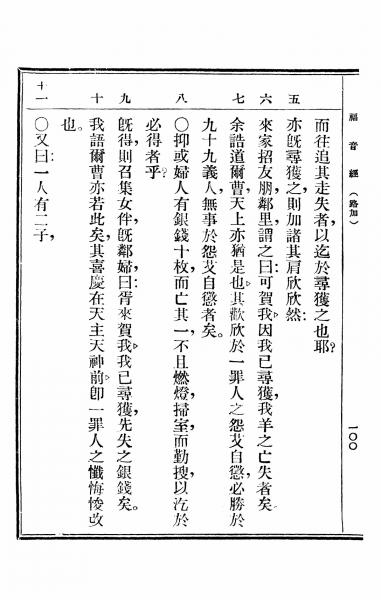 福音經（路加）
一〇〇
而往追其走失者，以迄於尋獲之也耶？
五
亦旣尋獲之，則加諸其肩，欣欣然：
六
來家招友朋，鄰里，謂之曰：可賀我，因我已尋獲，我羊之亡失者矣。
七
余誥道爾曹，天上亦猶是也，其歡欣於一罪人之怨艾自懲，必勝於
九十九義人，無事於怨艾自懲者矣。
八
〇抑或婦人有銀錢十枚，而亡其一，不且燃燈，掃室，而勤搜，以迄於
必得者乎？
九
旣得，則召集女伴，旣鄰婦，曰：胥來賀我，我已尋獲，先失之銀錢矣。
十
我語爾曹，亦若此矣，其喜慶在天主天神前，卽一罪人之懺悔悛改
也。
十一
〇又曰：一人有二子，